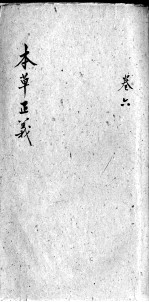 卷六
本草正義